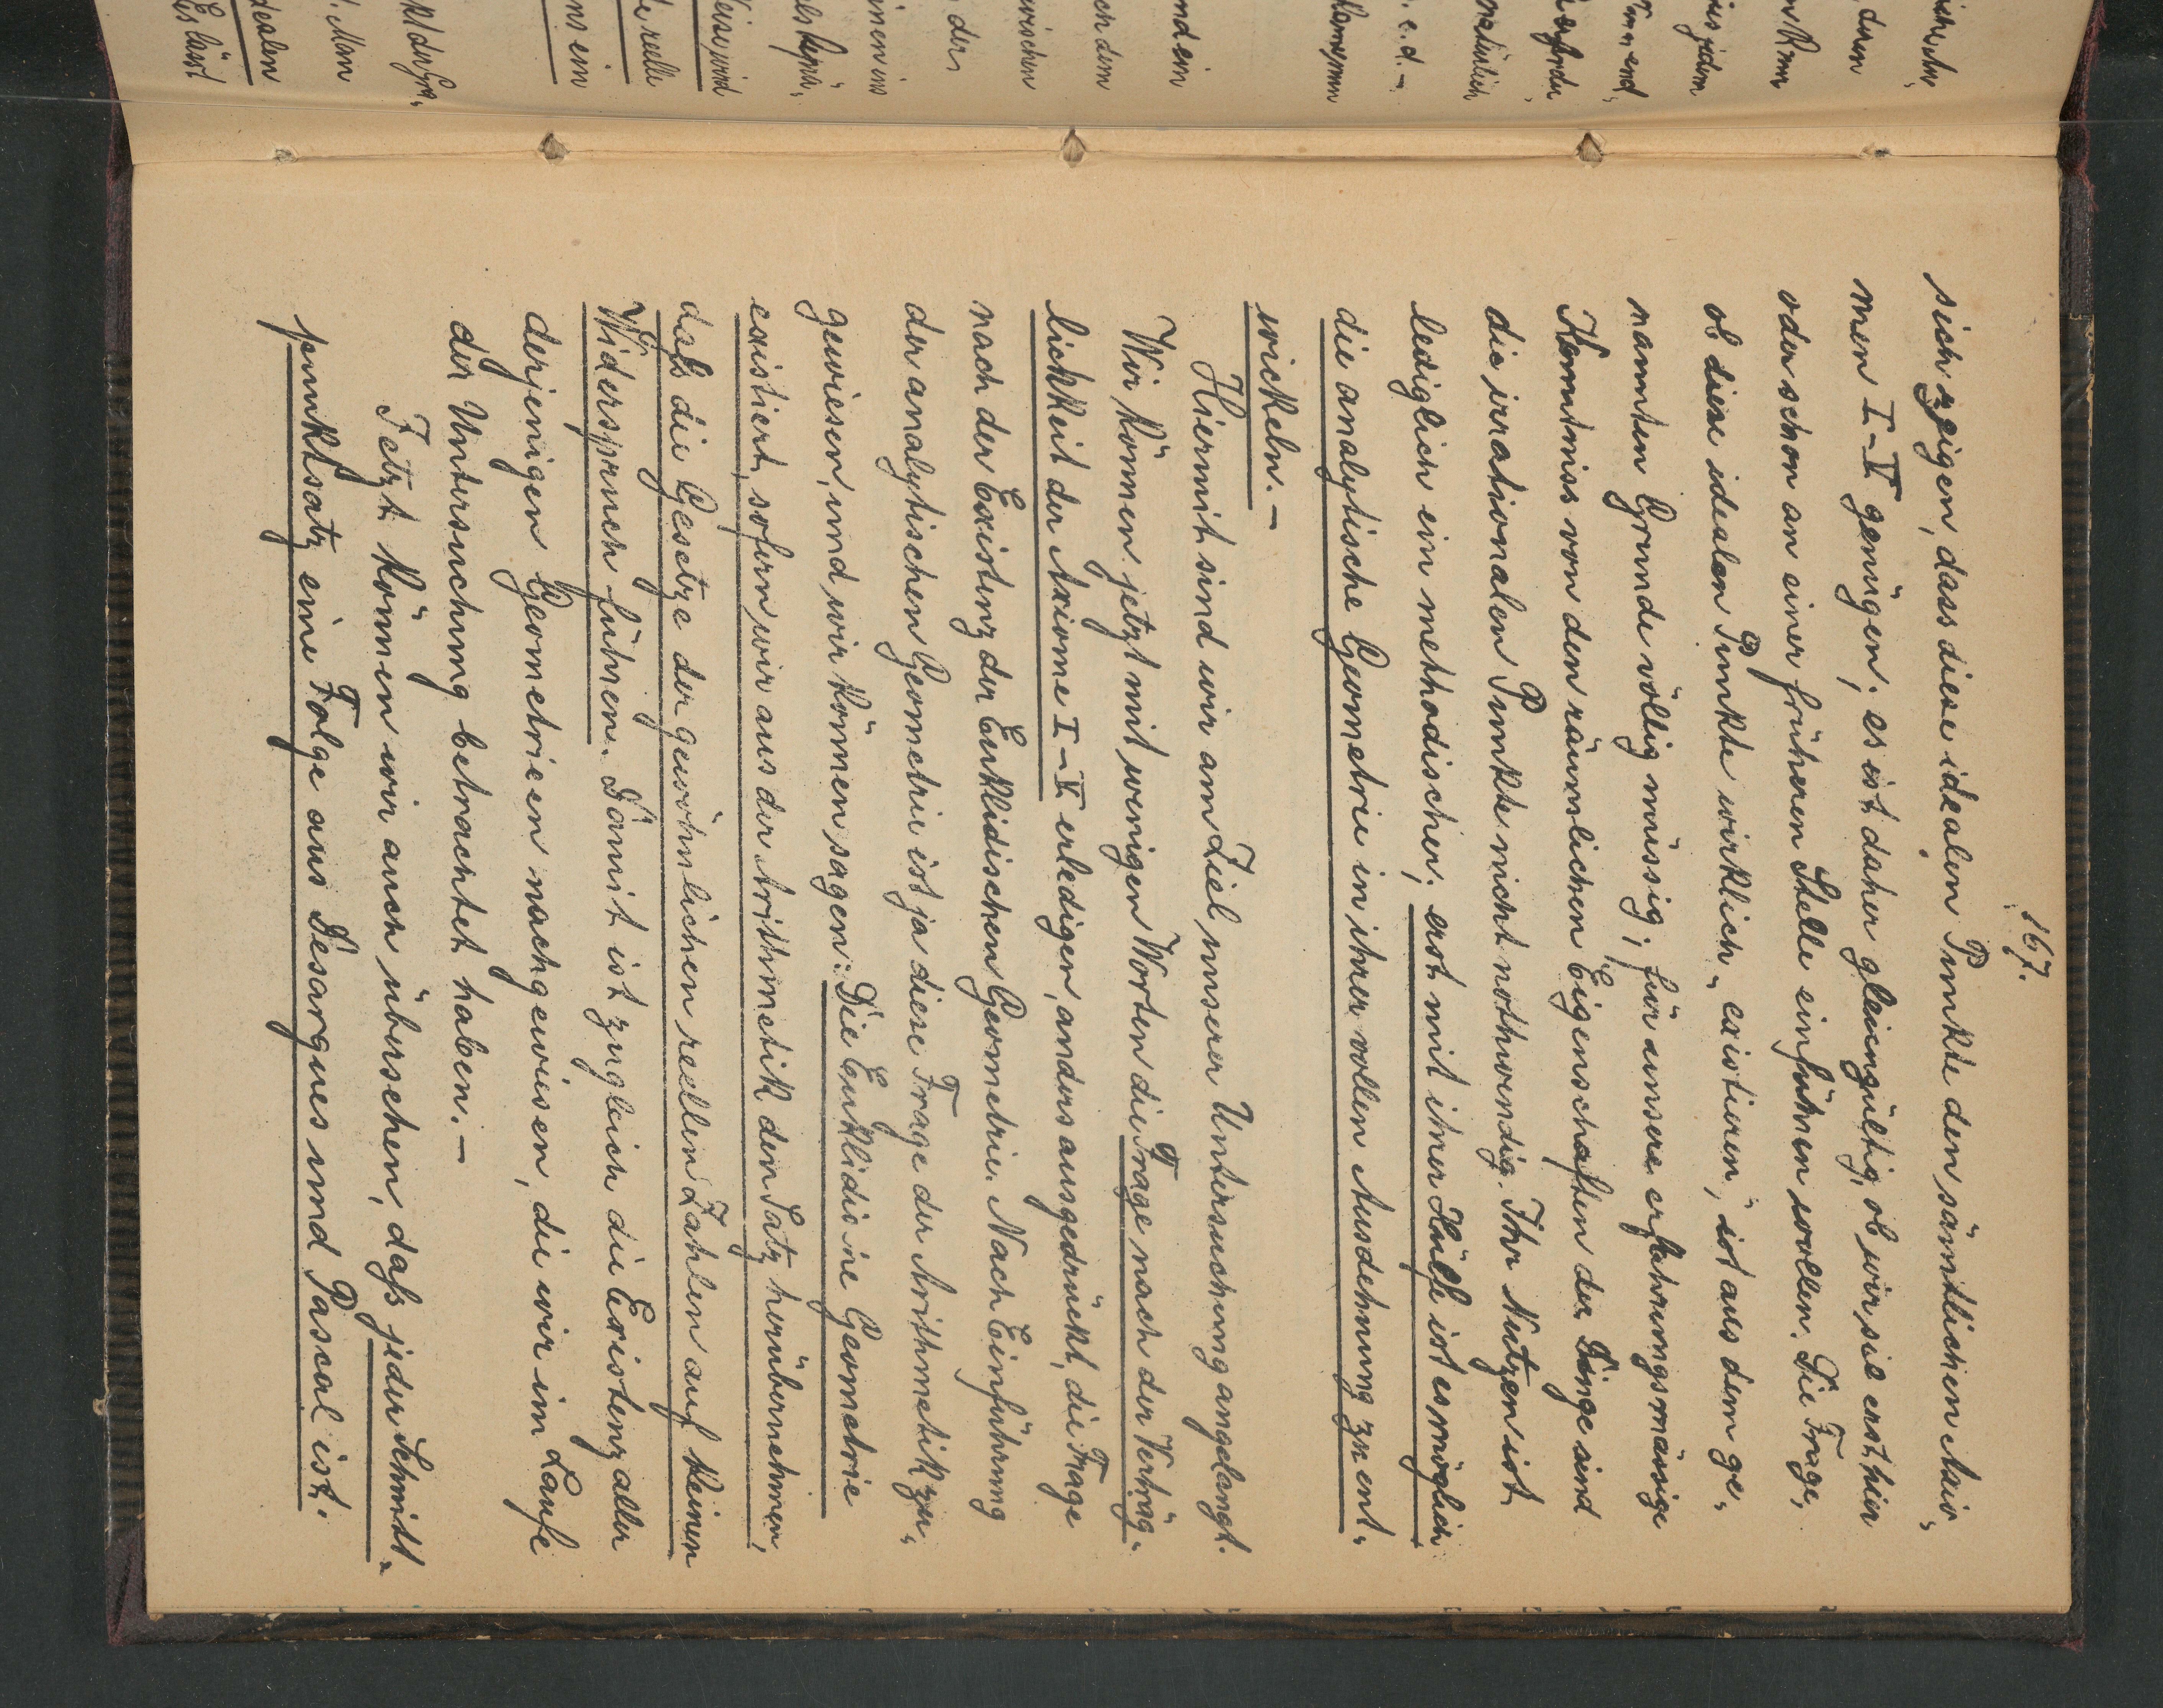 167.
sich zeigen, dass diese idealen Punkte den sämtlichen Axio-
men I–V genügen; es ist daher gleichgültig, ob wir sie erst hier
oder schon an einer früheren Stelle einführen wollen. Die Frage,
ob diese idealen Punkte wirklich „existieren“, ist aus dem ge-
nannten Grunde völlig müssig; für unsere erfahrungsmässige
Kenntniss von den räumlichen Eigenschaften der Dinge sind
die irrationalen Punkte nicht nothwendig. Ihr Nutzen ist
lediglich ein methodischer; erst mit ihrer Hülfe ist es möglich
die analytische Geometrie in ihrer vollen Ausdehnung zu ent-
wickeln. –
Hiermit sind wir am Ziel unserer Untersuchung angelangt.
Wir können jetzt mit wenigen Worten die Frage nach der Verträg-
lickkeit der Axiome I–V erledigen, anders ausgedrückt, die Frage
nach der Existenz der Euklidischen Geometrie. Nach Einführung
der analytischen Geometrie ist ja diese Frage der Arithmetik zu-
gewiesen, und wir können sagen: Die Euklidische Geometrie
existiert, sofern wir aus der Arithmetik den Satz herübernehmen,
daß die Gesetze der gewöhnlichen reellen Zahlen auf keinen
Widerspruch führen. Damit ist zugleich die Existenz aller
derjenigen Geometrieen nachgewiesen, die wir im Laufe
der Untersuchung betrachtet haben. –
Jetzt können wir auch übersehen, daß jeder Schnitt-
punktsatz eine Folge aus Desargues und Pascal ist.